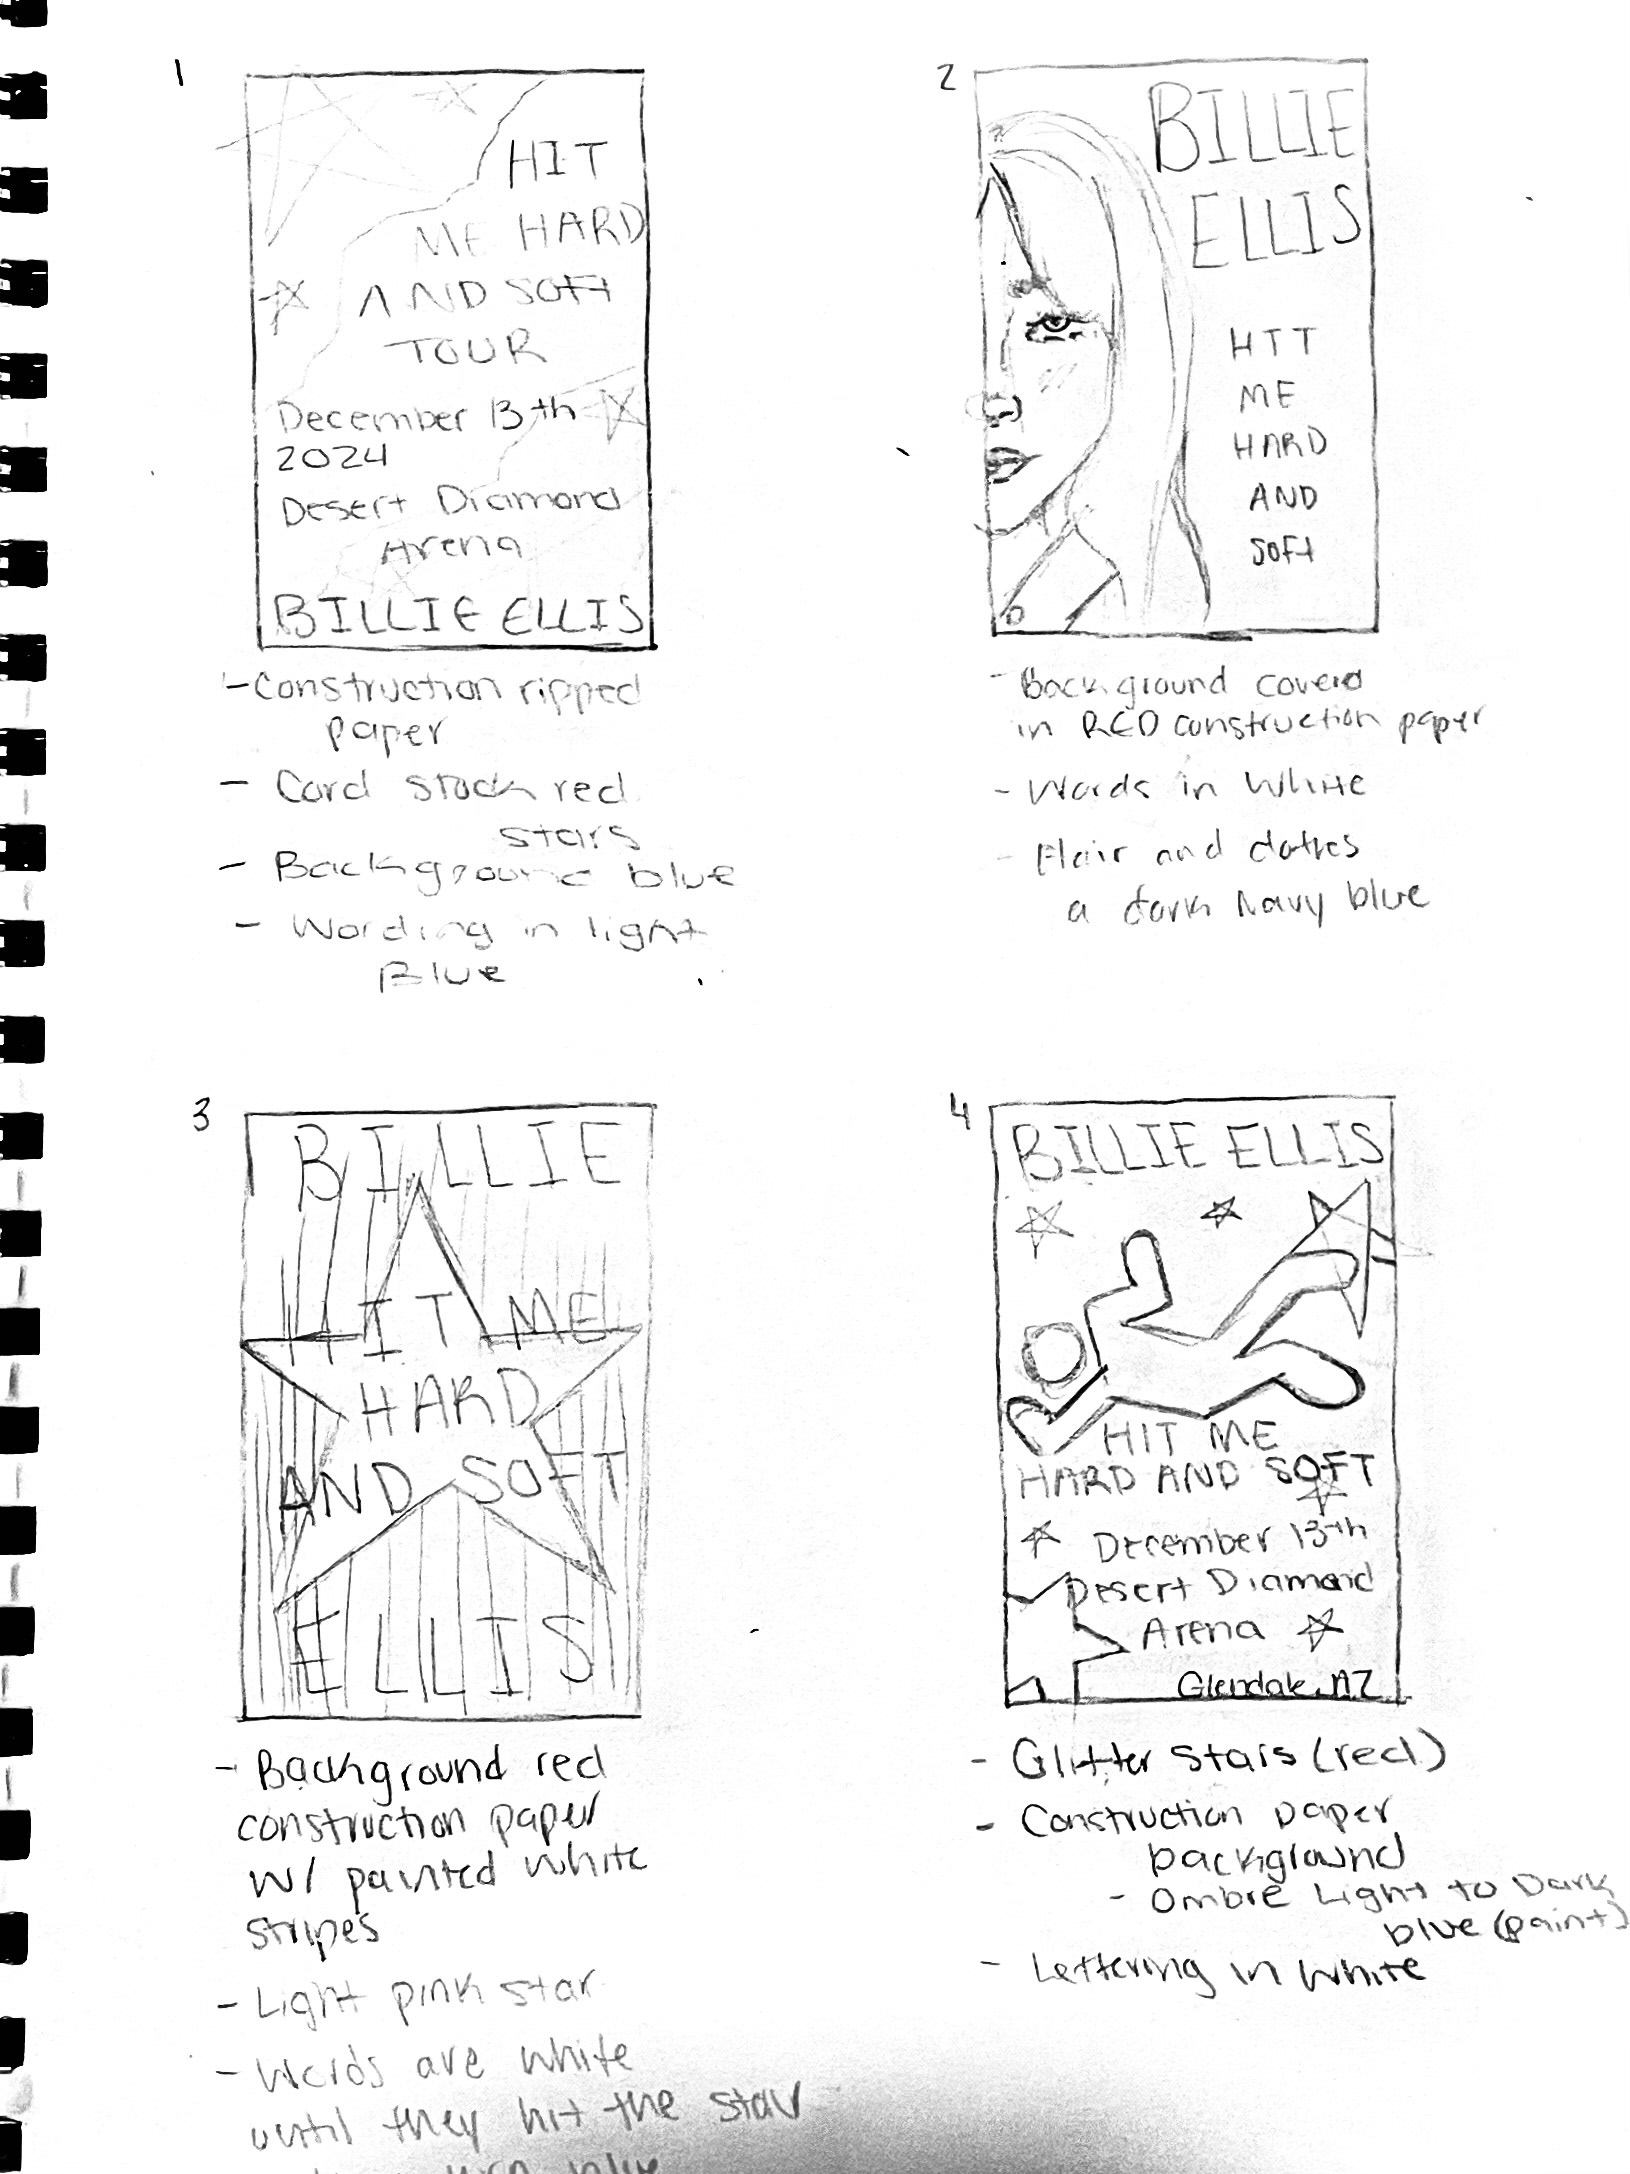 1
HIT
ME HARD
AND SOFT
TOUR
December 13th
2024
Desert Diamond
Arena
BILLIE ELLIS
- Construction ripped
paper
- Card stock red
stars
- Background blue
- Wording in light
Blue
2
BILLIE
ELLIS
HIT
ME
HARD
AND
SOFT
- Background coverd
in RED construction paper
- Words in white
- Hair and clothes
a dark Navy blue
3
BILLIE
HIT ME
HARD
AND SOFT
ELLIS
- Background red
construction paper
w/ painted white
stripes
- Light pink star
- Words are white
until they hit the star
turn blue
4
BILLIE ELLIS
HIT ME
HARD AND SOFT
December 13th
Desert Diamond
Arena
Glendale, AZ
- Glitter stars (red)
- Construction paper
background
- Ombre Light to Dark
blue (paint)
- Lettering in white